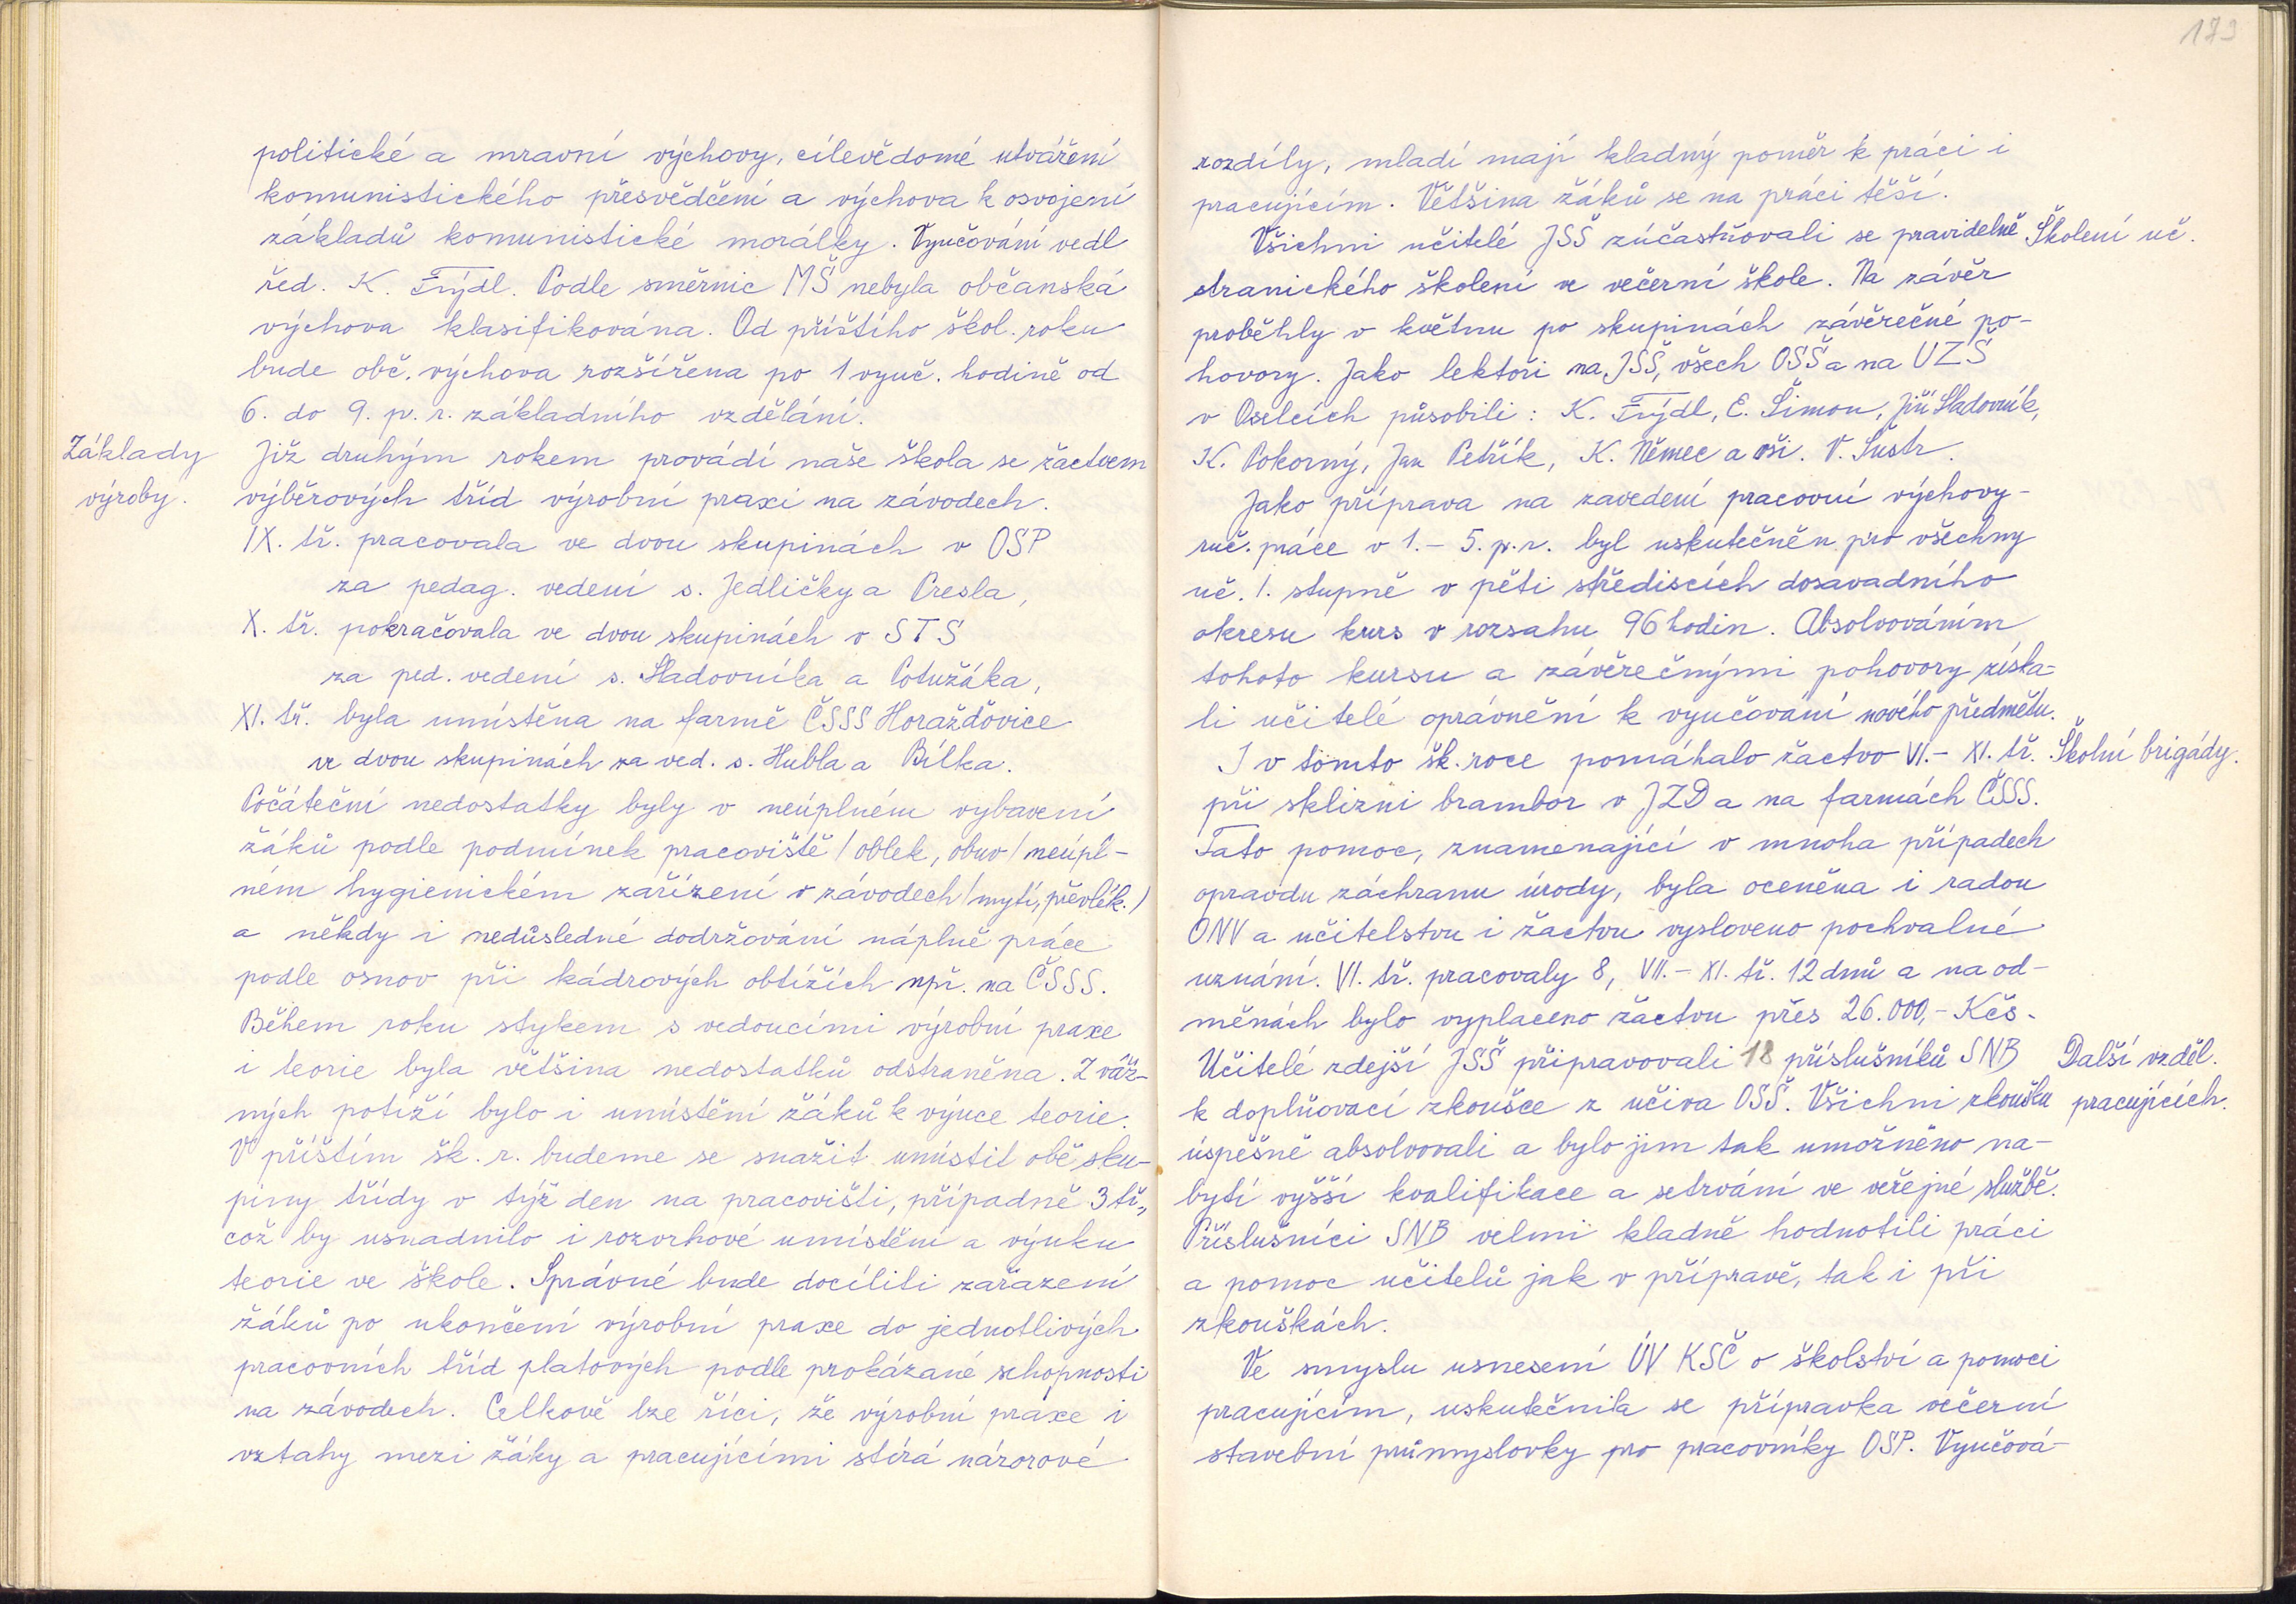 politické a mravní výchovy, cílevědomé utváření
komunistického přesvědčení a výchova k osvojení
základů komunistické morálky. Vyučování vedl
řed. K. Frýdl. Podle směrnic MŠ nebyla občanská
výchova klasifikována. Od příštího škol. roku
bude obč. výchova rozšířena po 1 vyuč. hodině od
6. do 9. p. r. základního vzdělání.
Základy
výroby.
Již druhým rokem provádí naše škola se žactvem
výběrových tříd výrobní praxi na závodech.
IX. tř. pracovala ve dvou skupinách v OSP
za pedag. vedení s. Jedličky a Presla,
X. tř. pokračovala ve dvou skupinách v STS
za ped. vedení s. Sladovníka a Potužáka,
XI. tř. byla umístěna na farmě ČSSS Horažďovice
ve dvou skupinách za ved. s. Hubla a Bílka.
Počáteční nedostatky byly v neúplném vybavení
žáků podle podmínek pracoviště / oblek, obuv / neúpl-
ném hygienickém zařízení v závodech / mytí, převlék. /
a někdy i nedůsledné dodržování náplně práce
podle osnov při kádrových obtížích např. na ČSSS.
Během roku stykem s vedoucími výrobní praxe
i teorie byla většina nedostatků odstraněna. Z váž-
ných potíží bylo i umístění žáků k výuce teorie.
V příštím šk. r. budeme se snažit umístit obě sku-
piny třídy v týž den na pracovišti, případně 3 tř.,
což by usnadnilo i rozvrhové umístění a výuku
teorie ve škole. Správné bude docíliti zařazení
žáků po ukončení výrobní praxe do jednotlivých
pracovních tříd platových podle prokázané schopnosti
na závodech. Celkově lze říci, že výrobní praxe i
vztahy mezi žáky a pracujícími stírá názorové
179
rozdíly, mladí mají kladný poměr k práci i
pracujícím. Většina žáků se na práci těší.
Všichni učitelé JSŠ zúčastňovali se pravidelně
Školení uč.
stranického školení ve večerní škole. Na závěr
proběhly v květnu po skupinách závěrečné po-
hovory. Jako lektoři na JSŠ, všech OSŠ a na UZŠ
v Oselcích působili: K. Frýdl, E. Šimon, Jiří Sladovník,
K. Pokorný, Jan Petřík, K. Němec a oši. V. Šustr.
Jako příprava na zavedení pracovní výchovy-
ruč. práce v 1.- 5. p. r. byl uskutečněn pro všechny
uč. 1. stupně v pěti střediscích dosavadního
okresu kurs v rozsahu 96 hodin. Absolvováním
tohoto kursu a závěrečnými pohovory získa-
li učitelé oprávnění k vyučování nového předmětu.
I v tomto šk. roce pomáhalo žactvo VI.- XI. tř.
Školní brigády.
při sklizni brambor v JZD a na farmách ČSSS.
Tato pomoc, znamenající v mnoha případech
opravdu záchranu úrody, byla oceněna i radou
ONV a učitelstvu i žactvu vysloveno pochvalné
uznání. VI. tř. pracovaly 8, VII.- XI. tř. 12 dnů a na od-
měnách bylo vyplaceno žactvu přes 26.000,- Kčs.
Učitelé zdejší JSŠ připravovali 18 příslušníků SNB
Další vzděl.
pracujících.
k doplňovací zkoušce z učiva OSŠ. Všichni zkoušku
úspěšně absolvovali a bylo jim tak umožněno na-
bytí vyšší kvalifikace a setrvání ve veřejné službě.
Příslušníci SNB velmi kladně hodnotili práci
a pomoc učitelů jak v přípravě, tak i při
zkouškách.
Ve smyslu usnesení ÚV KSČ o školství a pomoci
pracujícím, uskutečnila se přípravka večerní
stavební průmyslovky pro pracovníky OSP. Vyučová-